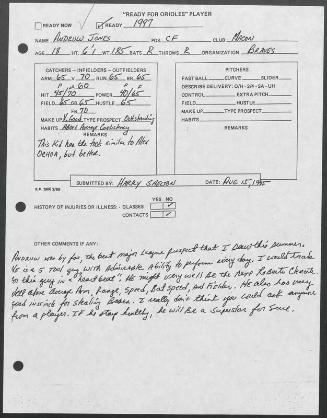 "READY FOR ORIOLES" PLAYER
READY NOW ✓ READY 1997
NAME ANDRUW JONES POS. CF CLUB MACON
AGE 18 HT. 6'1 WT. 185 BATS R THROWS R ORGANIZATION BRAVES
CATCHERS - INFIELDERS - OUTFIELDERS
ARM 65 V 70 RUN 65 ER. 65
HIT POWER
FIELD HUSTLE 65
MAKE UP V. Good TYPE PROSPECT Outstanding
HABITS Above Average Consistency
REMARKS
This kid has the tools similar to Alex
OCHOA, but better.
PITCHERS
FAST BALL CURVE SLIDER
DESCRIBE DELIVERY: O/H - 3/4 - SA - UH
CONTROL EXTRA PITCH
FIELD HUSTLE
MAKE UP TYPE PROSPECT
HABITS
REMARKS
SUBMITTED BY: HARRY SHELTON DATE: AUG 15, 1995
YES NO
HISTORY OF INJURIES OR ILLNESS: - GLASSES ✓
CONTACTS ✓
OTHER COMMENTS IF ANY:
Andruw was by far, the best major league prospect that I saw this summer.
He is a 5 tool guy with admirable ability to perform every day. I would trade
for this guy in a "heart beat". He might very well be the next Roberto Clemente.
Well above average Arm, Range, Speed, Bat speed, and Fielder. He also has very
good instincts for stealing Bases. I really don't think you could ask anymore
from a player. If he stays healthy, he will be a Superstar for Sure.